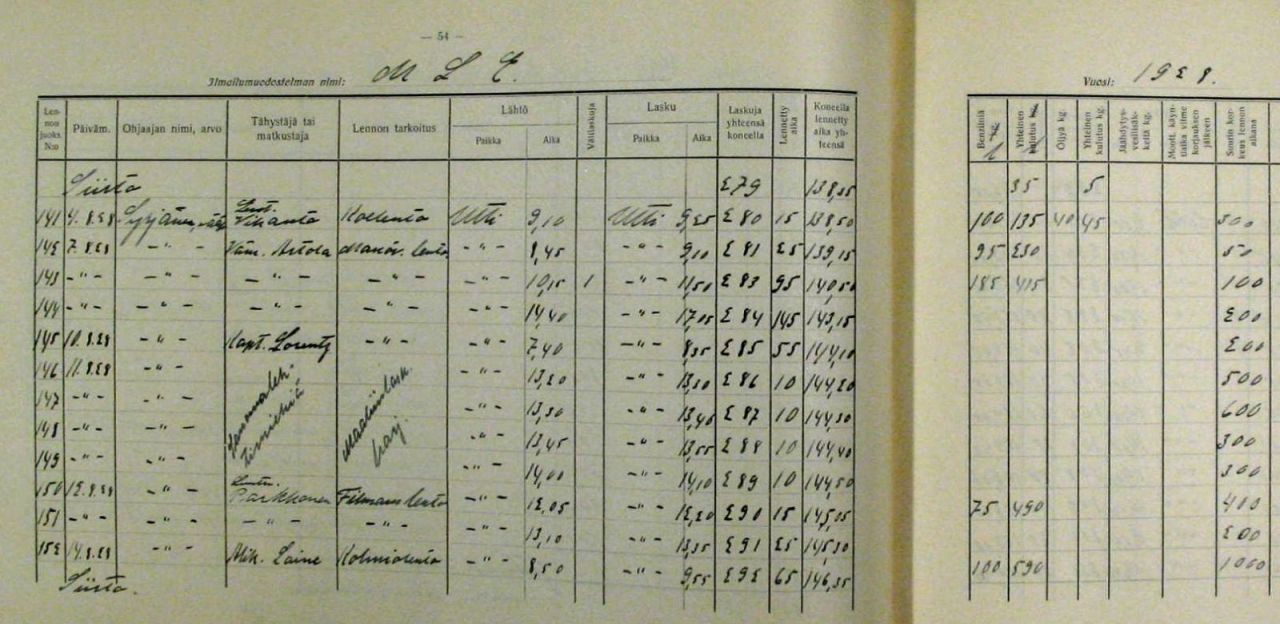 — 54 —
Ilmailumuodostelman nimi: M L E.
Vuosi: 1928.
Lennon juoks. N:o Päiväm. Ohjaajan nimi, arvo Tähystäjä tai matkustaja Lennon tarkoitus Lähtö Paikka Aika Välilaskuja Lasku Paikka Aika Laskuja yhteensä koneella Lennetty aika Koneella lennetty aika yhteensä Bensiiniä Yhteinen kulutus Öljyä kg. Yhteinen kulutus kg. Jäähdytysvesilisäkkeitä kg. Moott. käyntiaika viime korjauksen jälkeen Suurin korkeus lennon aikana
Siirto 279 138,35 35 5
141 4.8.28 Lent. Vihanto Koelento Utti 9,10 Utti 9,25 280 15 138,50 100 135 40 45 300
142 7.8.28 -"- Vänr. Artola Manöv. lento -"- 8,45 -"- 9,10 281 25 139,15 95 230 50
143 -"- -"- -"- -"- -"- 10,15 1 -"- 11,50 283 95 140,50 185 415 100
144 -"- -"- -"- -"- -"- 14,40 -"- 17,05 284 145 143,15 200
145 10.8.28 -"- Kapt. Lorentz -"- -"- 7,40 -"- 8,35 285 55 144,10 200
146 11.8.28 -"- -"- 13,20 -"- 13,30 286 10 144,20 500
147 -"- -"- -"- 13,30 -"- 13,40 287 10 144,30 600
148 -"- -"- -"- 13,45 -"- 13,55 288 10 144,40 300
149 -"- -"- -"- 14,00 -"- 14,10 289 10 144,50 300
150 12.8.28 -"- Parkkonen -"- 12,05 -"- 12,20 290 15 145,05 75 490 400
151 -"- -"- -"- -"- -"- 13,10 -"- 13,35 291 25 145,30 200
152 14.8.28 -"- Alik. Laine Kolmiolento -"- 8,50 -"- 9,55 292 65 146,35 100 590 1000
Siirto.